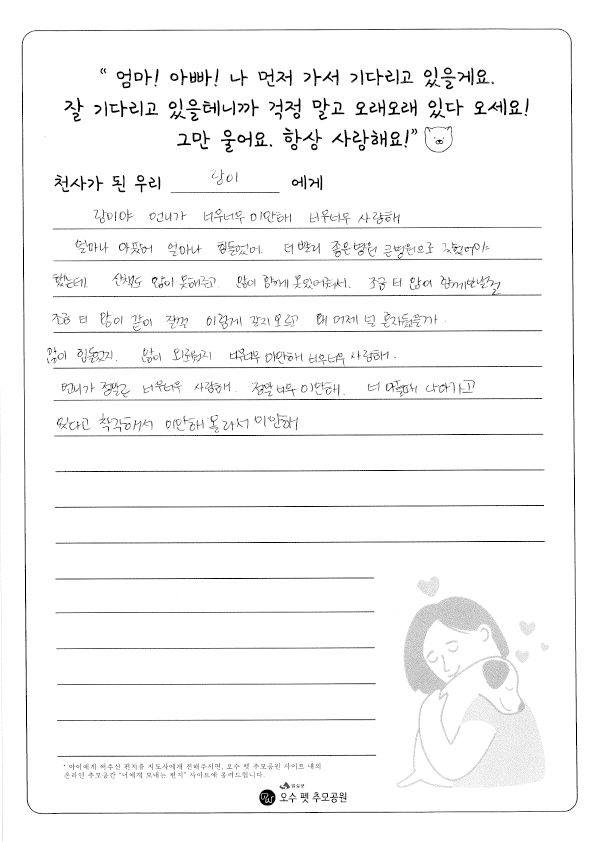 “ 엄마! 아빠! 나 먼저 가서 기다리고 있을게요.
잘 기다리고 있을테니까 걱정 말고 오래오래 있다 오세요!
그만 울어요. 항상 사랑해요!”
천사가 된 우리 랑이 에게
랑이야 언니가 너무너무 미안해 너무너무 사랑해
얼마나 아팠어 얼마나 힘들었어. 더 빨리 좋은병원 큰병원으로
했는데. 산책도 많이 못해주고. 많이 함께 못있어줘서. 조금 더 많이 함께
조금 더 많이 같이 잘껄 이렇게 갈지 모르고. 왜 어제 널 혼자뒀을까.
많이 힘들었지. 많이 외로웠지 너무너무 미안해 너무너무 사랑해.
언니가 정말로 너무너무 사랑해. 정말 너무 미안해. 너 아픈데 나아가고
있다고 착각해서 미안해 몰라서 미안해
* 아이에게 써주신 편지를 지도사에게 전해주시면, 오수 펫 추모공원 사이트 내의
온라인 추모공간 "너에게 보내는 편지" 사이트에 올려드립니다.
임실군
오수 펫 추모공원